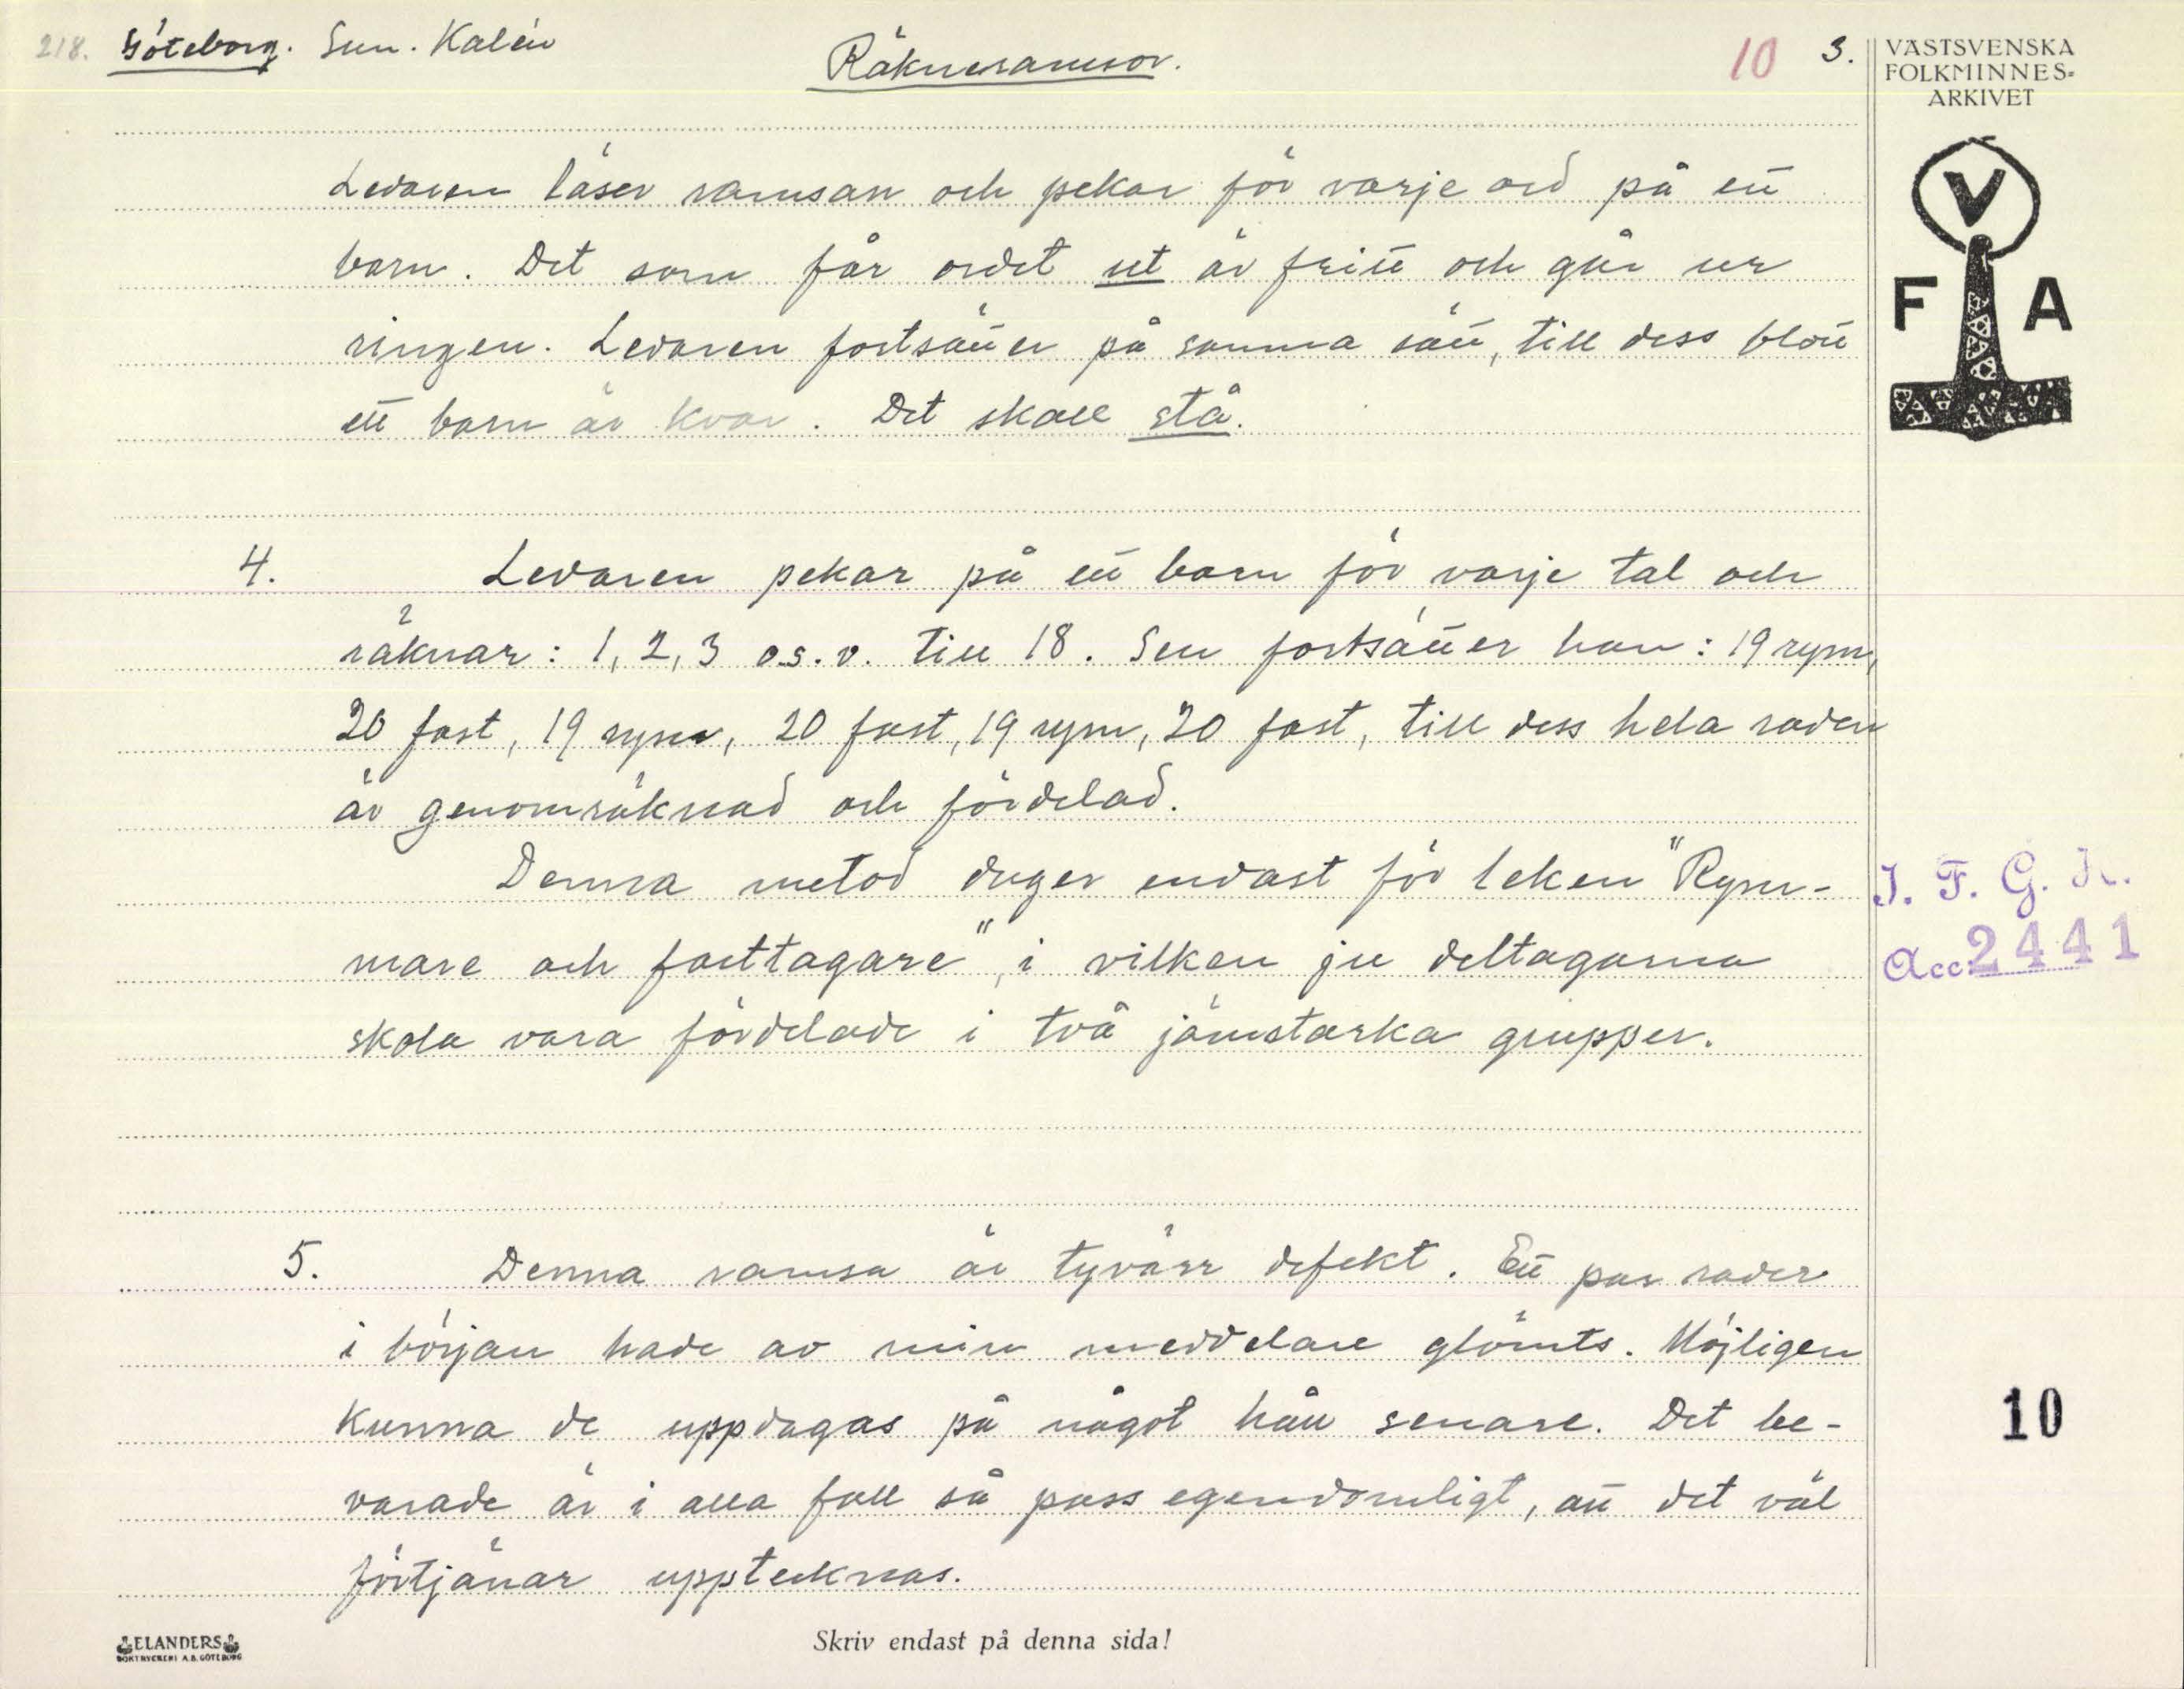 218. Göteborg. Sun. Kalén
Räkneramsor.
10 3.
VÄSTSVENSKA
FOLKMINNES=
ARKIVET
V
F A
Ledaren läser ramsan och pekar för varje ord på ett
barn. Det som får ordet ut är fritt och går ur
ringen. Ledaren fortsätter på samma sätt, till dess blott
ett barn är kvar. Det skall stå.
4. Ledaren pekar på ett barn för varje tal och
räknar: 1, 2, 3 o.s.v. till 18. Sen fortsätter han: 19 rym,
20 fast, 19 rym, 20 fast, 19 rym, 20 fast, till dess hela raden
är genomräknad och fördelad.
Denna metod duger endast för leken "Rym-
mare och fasttagare", i vilken ju deltagarna
skola vara fördelade i två jämstarka grupper.
I. F. G. H.
Acc. 2441
5. Denna ramsa är tyvärr defekt. Ett par rader
i början hade av min meddelare glömts. Möjligen
kunna de uppdagas på något håll senare. Det be-
varade är i alla fall så pass egendomligt, att det väl
förtjänar upptecknas.
10
ELANDERS
BOKTRYCKERI A.B. GÖTEBORG
Skriv endast på denna sida!